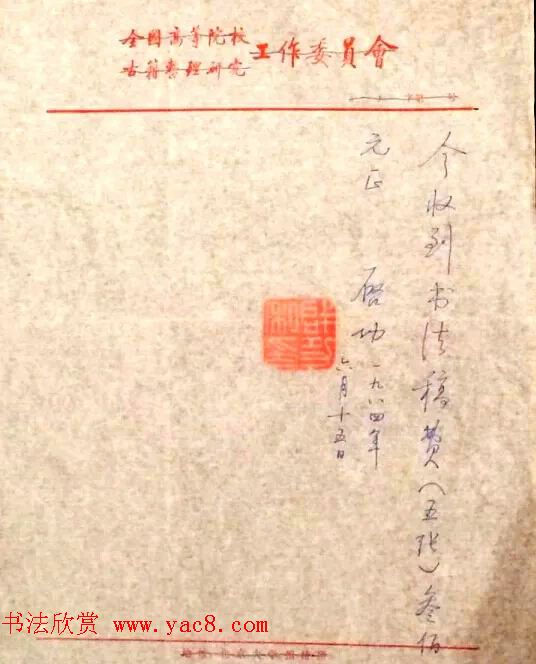 全國高等院校
古籍整理研究
工作委員會
字第 号
今收到书法稿费(五张)叁佰
元正
启功
一九八四年
六月十五日
书法欣赏 www.yac8.com